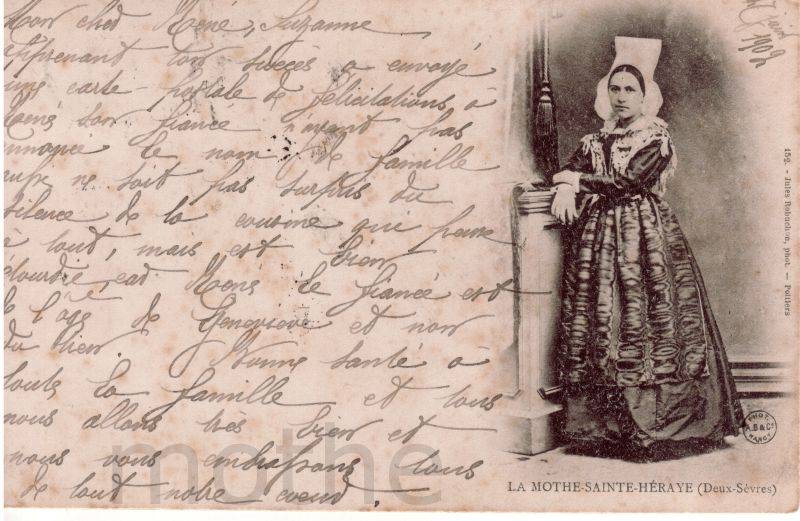 Mon cher René, Suzanne
apprenant ton succès a envoyé
une carte-postale de félicitations à
son fiancé n'ayant pas
annoncé le nom de famille
ne soit pas surpris du
silence de la cousine qui pense
à tout, mais est bien
étourdie, car Mens le fiancé est
de l'âge de Geneviève et non
du tien. Bonne santé à
toute la famille et tous
nous allons très bien et
nous vous embrassons tous
de tout notre coeur.
juin
1902
152. - Jules Robuchon, phot. — Poitiers
PHOT. B & Cie NANCY
LA MOTHE-SAINTE-HÉRAYE (Deux-Sèvres)
mothe